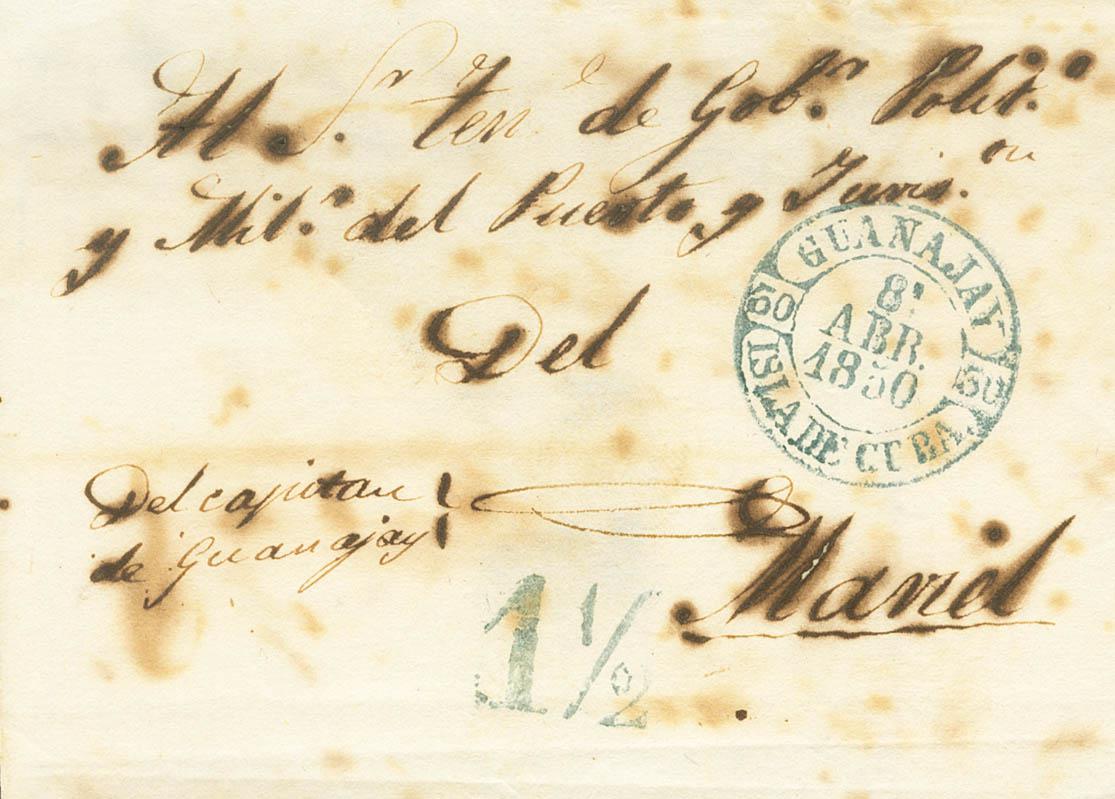 Al S.r Ten.e de Gob.r Polít.o
y Mil.r del Puerto y Juris.on
Del
GUANAJAY
8 ABR. 1850
ISLA DE CUBA
Del capitan
de Guanajay
Mariel
1 1/2